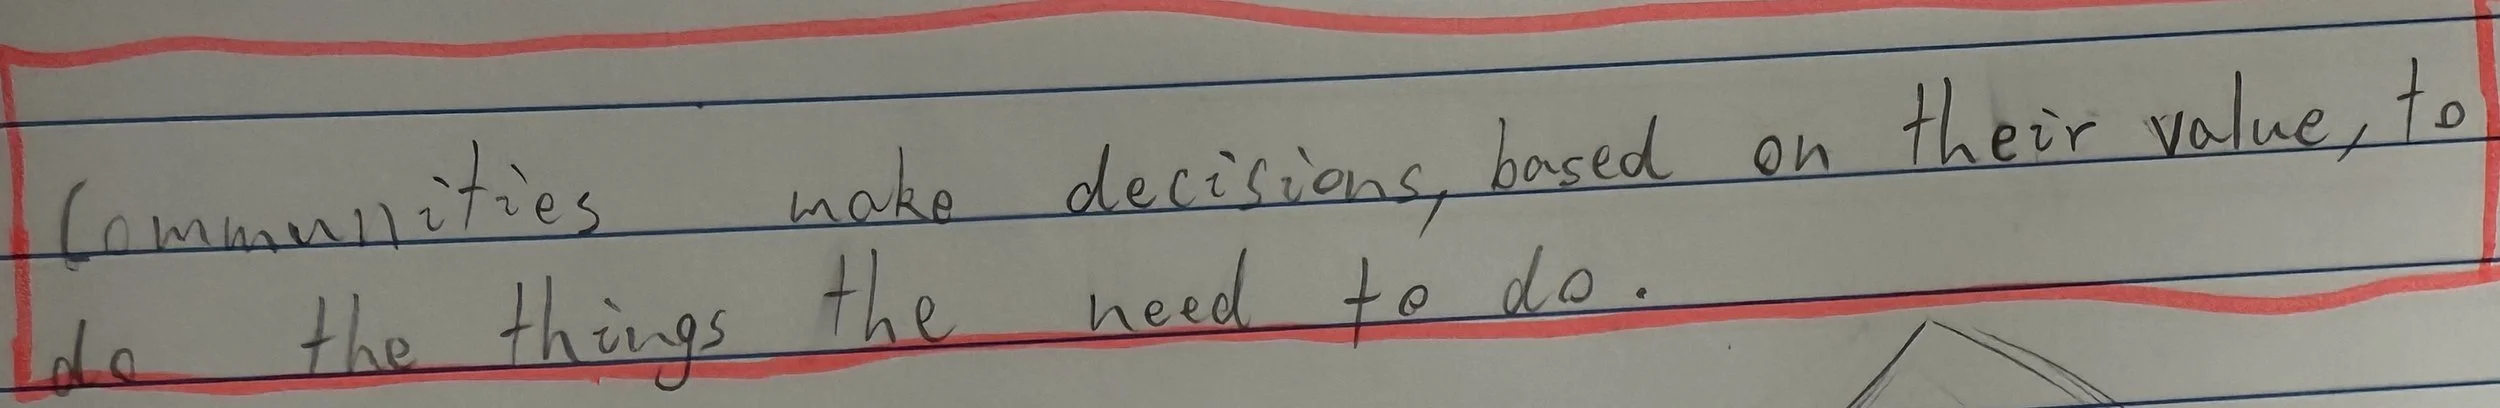 Communities make decisions, based on their value, to
do the things the need to do.